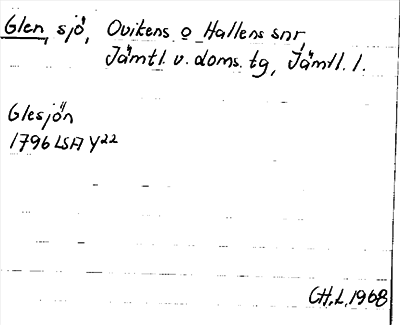 Glen, sjö, Ovikens o Hallens snr,
Jämtl. v. doms. tg, Jämtl. l.
Glesjön
1796 LSA Y22
CH.L. 1968